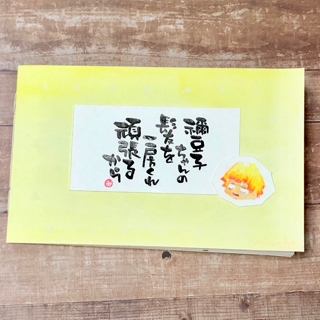 禰豆子
ちゃんの
髪を
一房くれ
頑張る
から